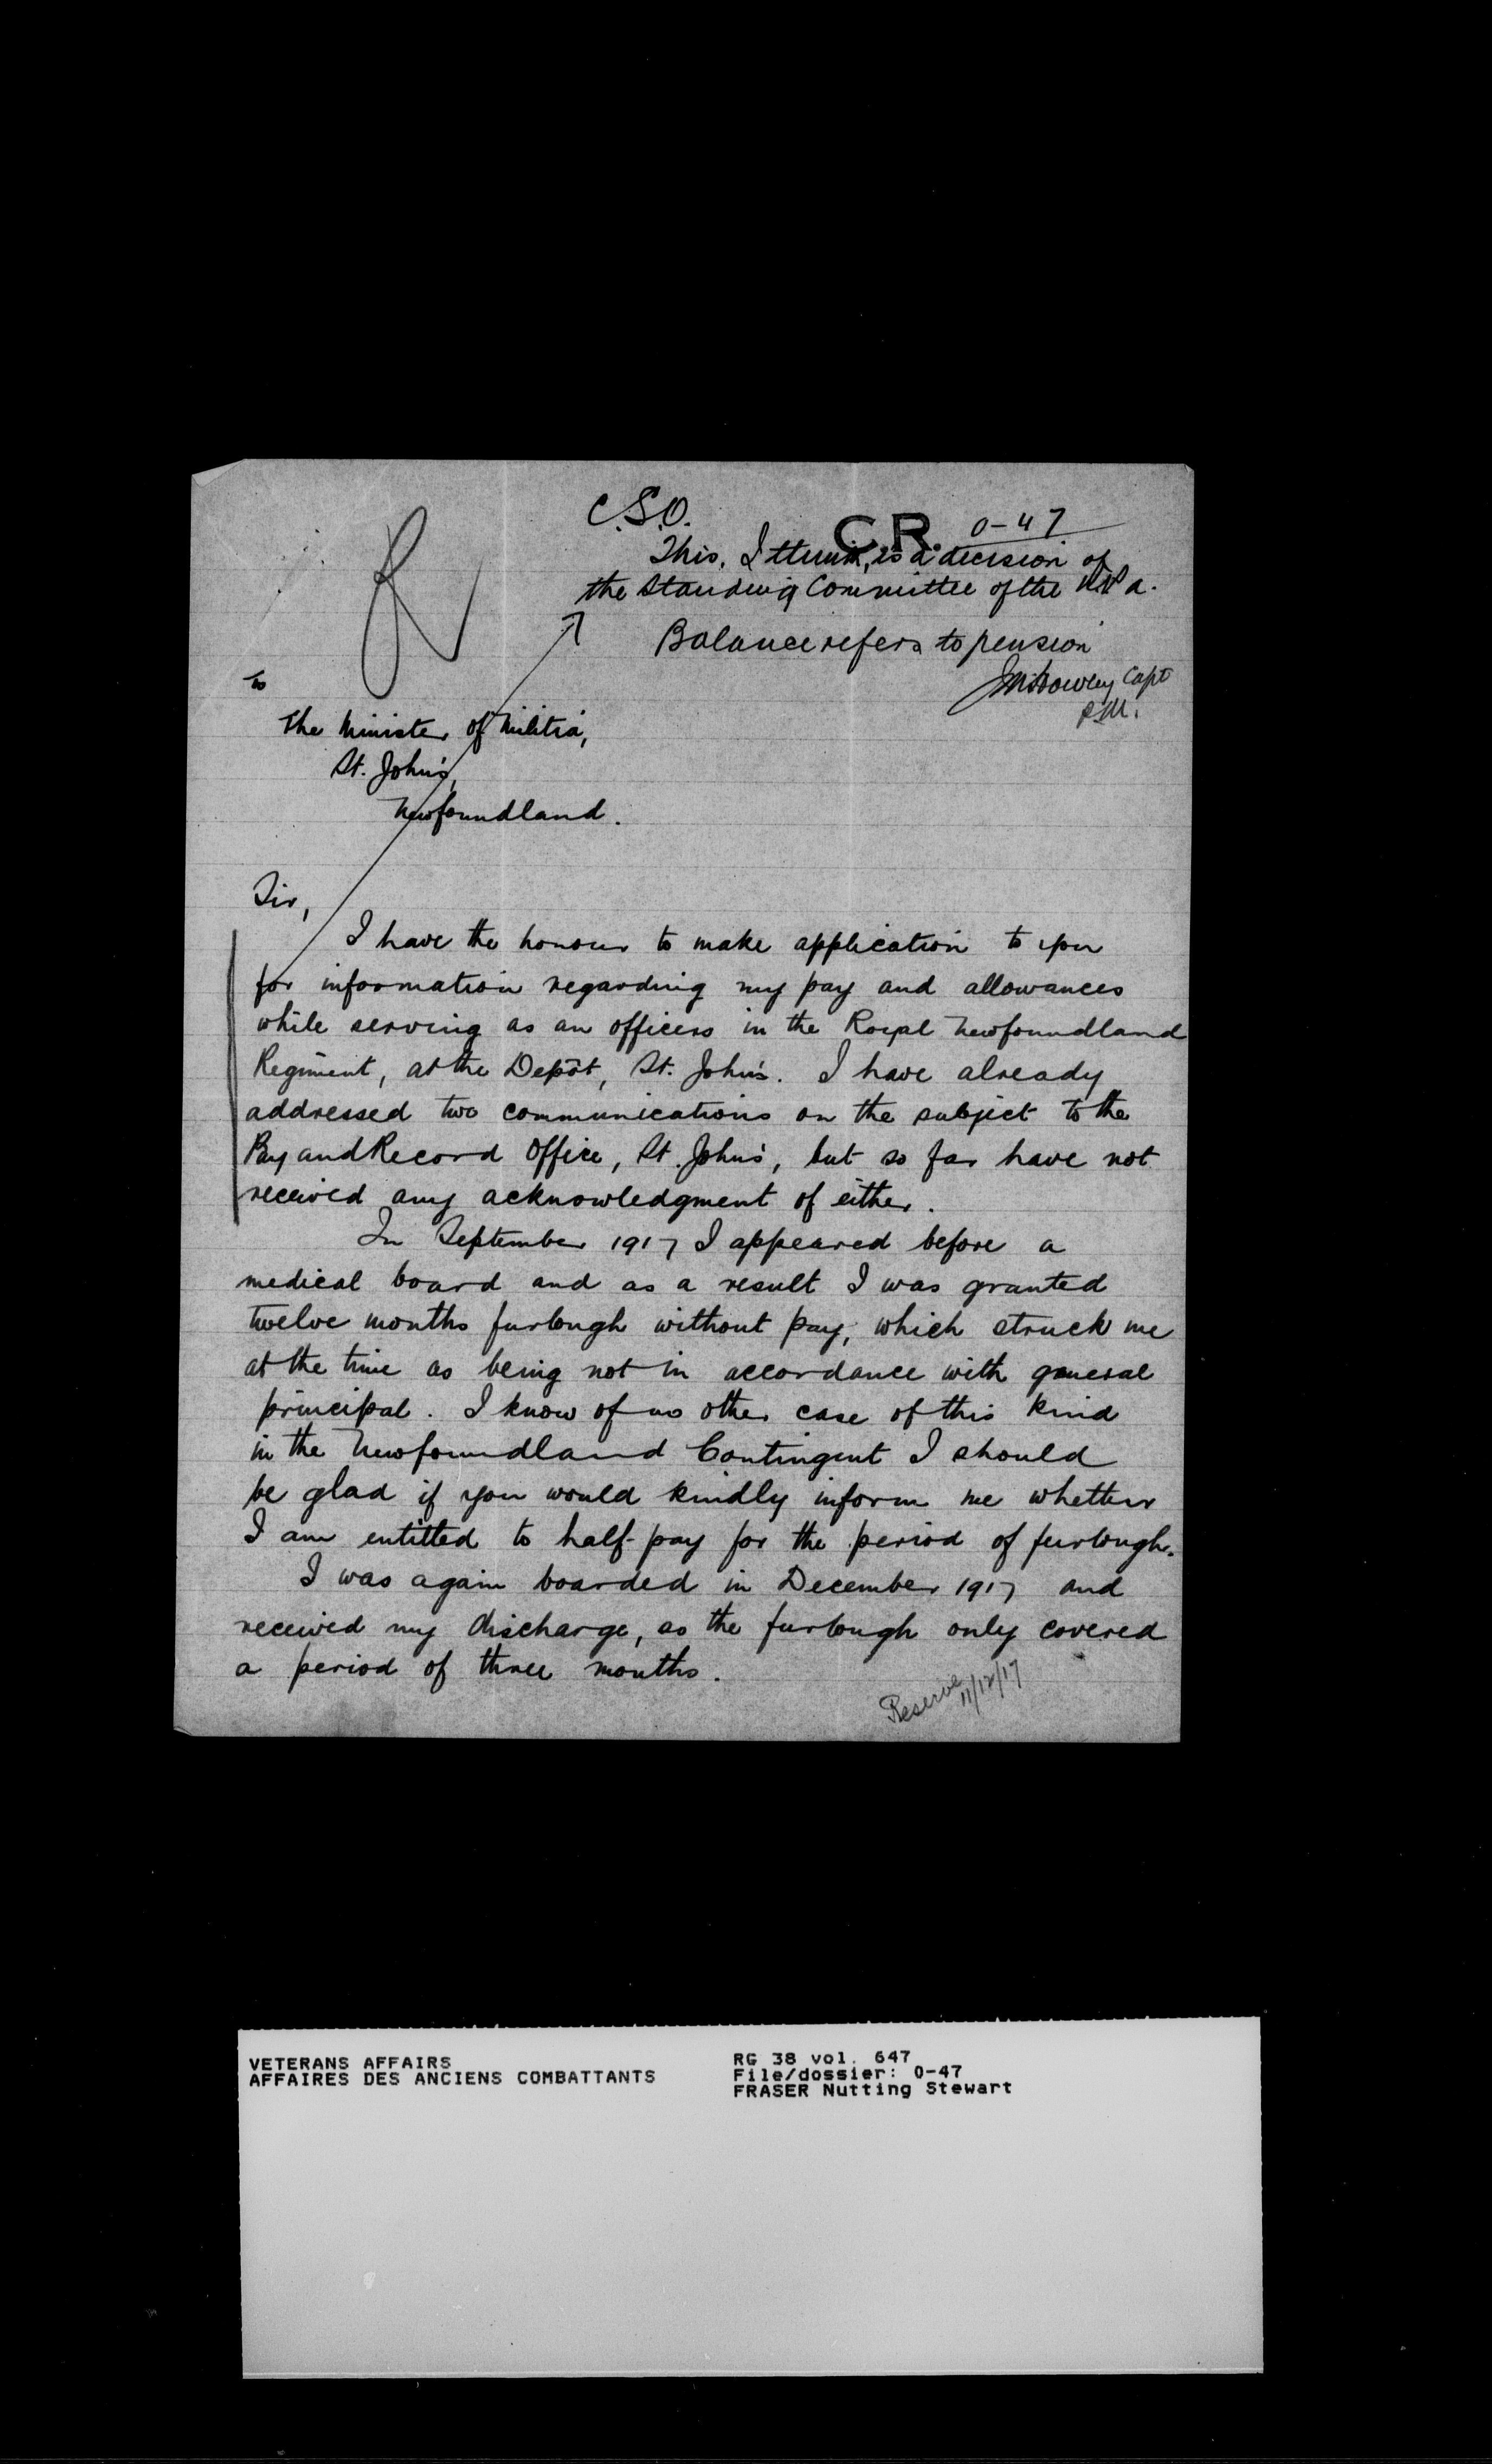 C.S.O.
C.R. 0-47
This, I think, is a decision of
the Standing Committee of the
Balance refers to pension
Capt
To
The Minister of Militia,
St. John's,
Newfoundland.
Sir,
I have the honour to make application to you
for information regarding my pay and allowances
while serving as an officers in the Royal Newfoundland
Regiment, at the Depôt, St. John's. I have already
addressed two communications on the subject to the
Pay and Record Office, St. John's, but so far have not
received any acknowledgment of either.
In September 1917 I appeared before a
medical board and as a result I was granted
twelve months furlough without pay, which struck me
at the time as being not in accordance with general
principal. I know of no other case of this kind
in the Newfoundland Contingent I should
be glad if you would kindly inform me whether
I am entitled to half-pay for the period of furlough.
I was again boarded in December 1917 and
received my discharge, as the furlough only covered
a period of three months.
Reserve 11/12/17
VETERANS AFFAIRS
AFFAIRES DES ANCIENS COMBATTANTS
RG 38 vol. 647
File/dossier: 0-47
FRASER Nutting Stewart